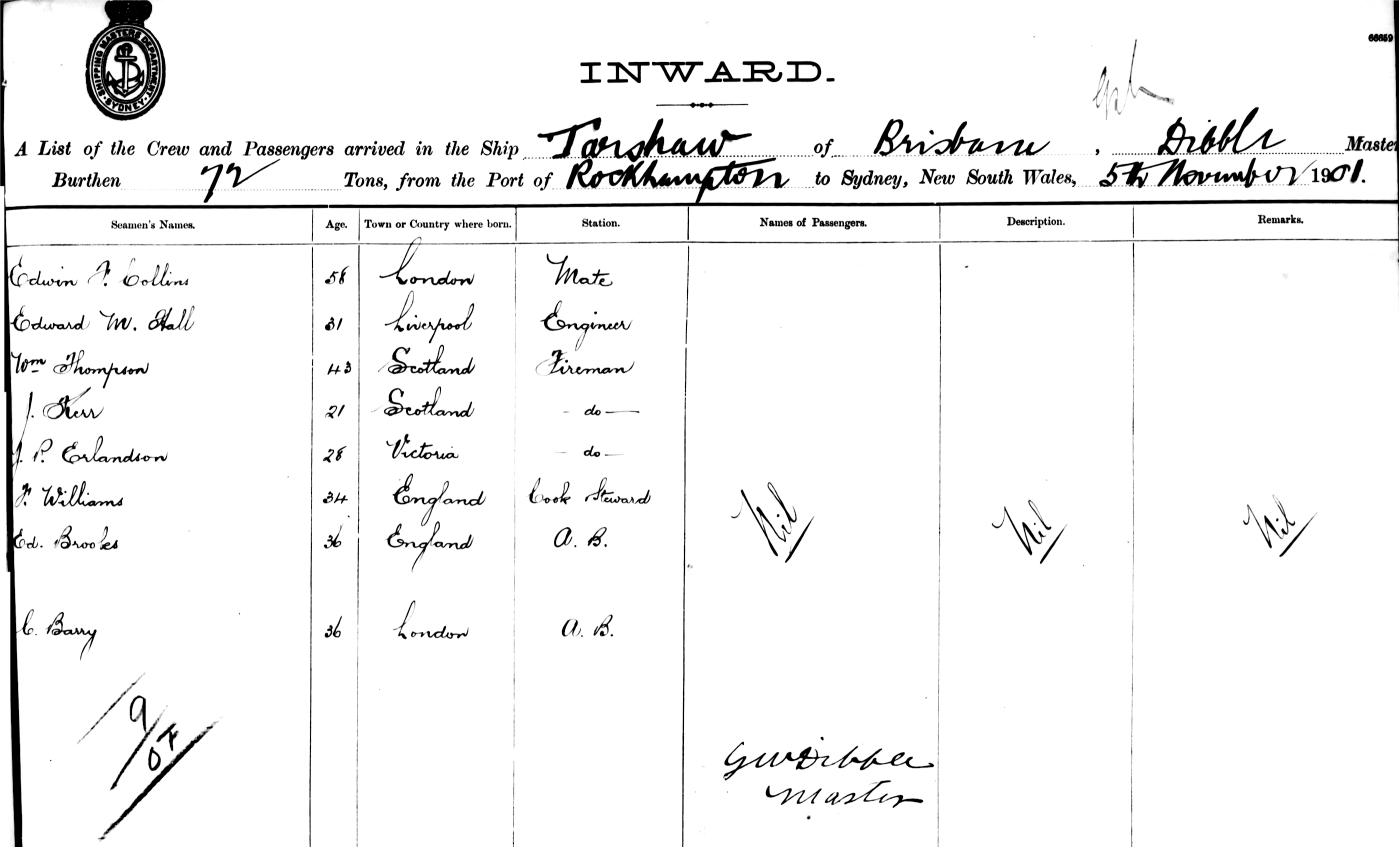 SHIPPING MASTERS DEPARTMENT
SYDNEY
66659
INWARD.
A List of the Crew and Passengers arrived in the Ship Tarshaw of Brisbane, Dibble Master
Burthen 72 Tons, from the Port of Rockhampton to Sydney, New South Wales, 5th November 1901.
Seamen's Names. Age. Town or Country where born. Station. Names of Passengers. Description. Remarks.
Edwin F. Collins 58 London Mate
Edward M. Hall 31 Liverpool Engineer
Wm Thompson 43 Scotland Fireman
J. Kerr 21 Scotland – do –
J. P. Erlandson 28 Victoria – do –
F. Williams 34 England Cook Steward
Ed. Brooks 36 England A. B. Nil Nil Nil
C. Barry 36 London A. B.
9/07
GW Dibble
Master